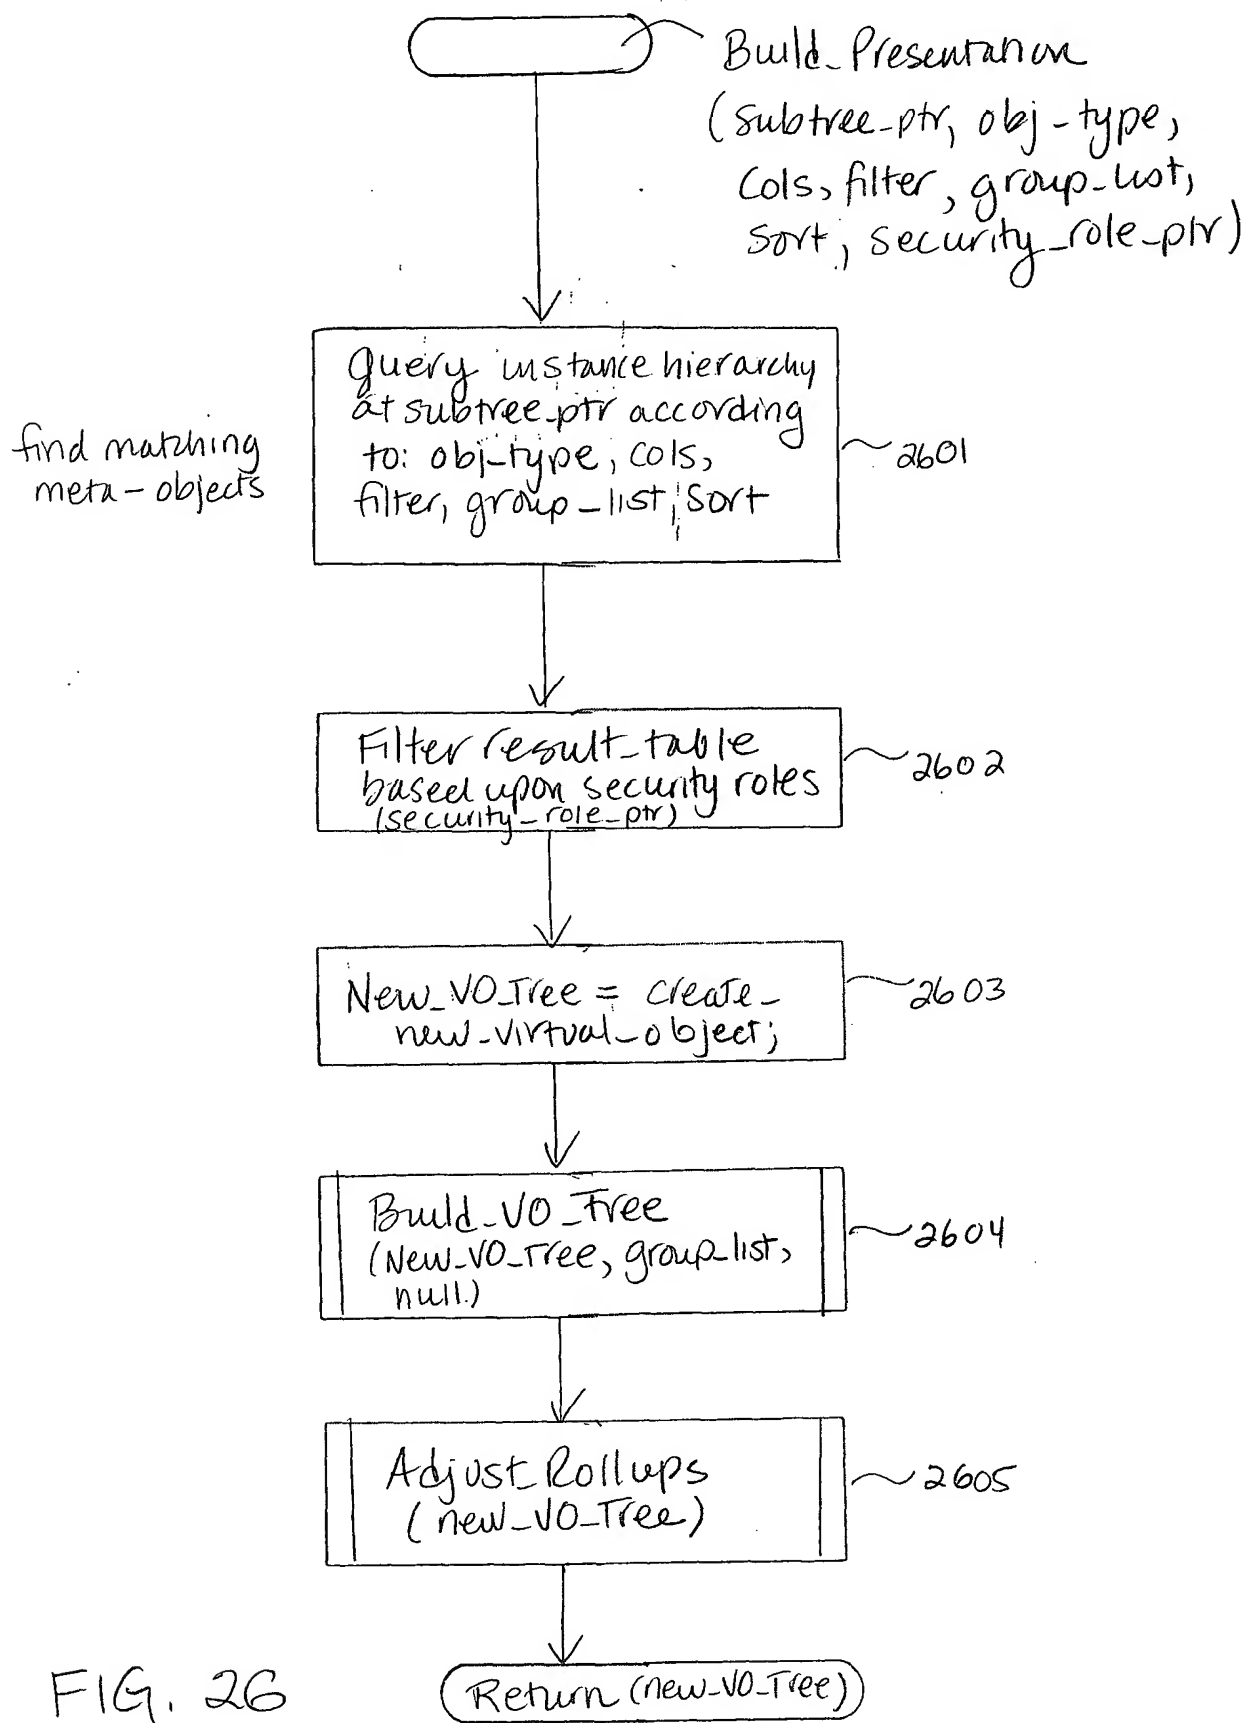 Build_Presentation
(subtree_ptr, obj-type,
cols, filter, group_list,
sort, security_role_ptr)
Query instance hierarchy
at subtree_ptr according
to: obj-type, cols,
filter, group_list, sort
find matching
meta-objects
2601
Filter result_table
based upon security roles
(security_role_ptr)
2602
New_VO_Tree = create_
new_virtual_object;
2603
Build_VO_Tree
(New_VO_Tree, group_list,
null)
2604
Adjust_Rollups
(new_VO_Tree)
2605
Return (new_VO_Tree)
FIG. 26